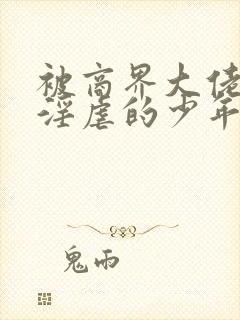 被商界大佬
淫虐的少年
鬼雨